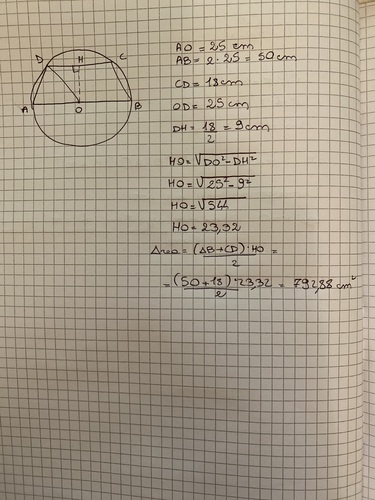 D H C
A O B
AO = 25 cm
AB = 2 · 25 = 50 cm
CD = 18 cm
OD = 25 cm
DH = 18/2 = 9 cm
HO = √DO² - DH²
HO = √25² - 9²
HO = √544
HO = 23,32
Area = (AB + CD) · HO / 2 =
= (50 + 18) · 23,32 / 2 = 792,88 cm²